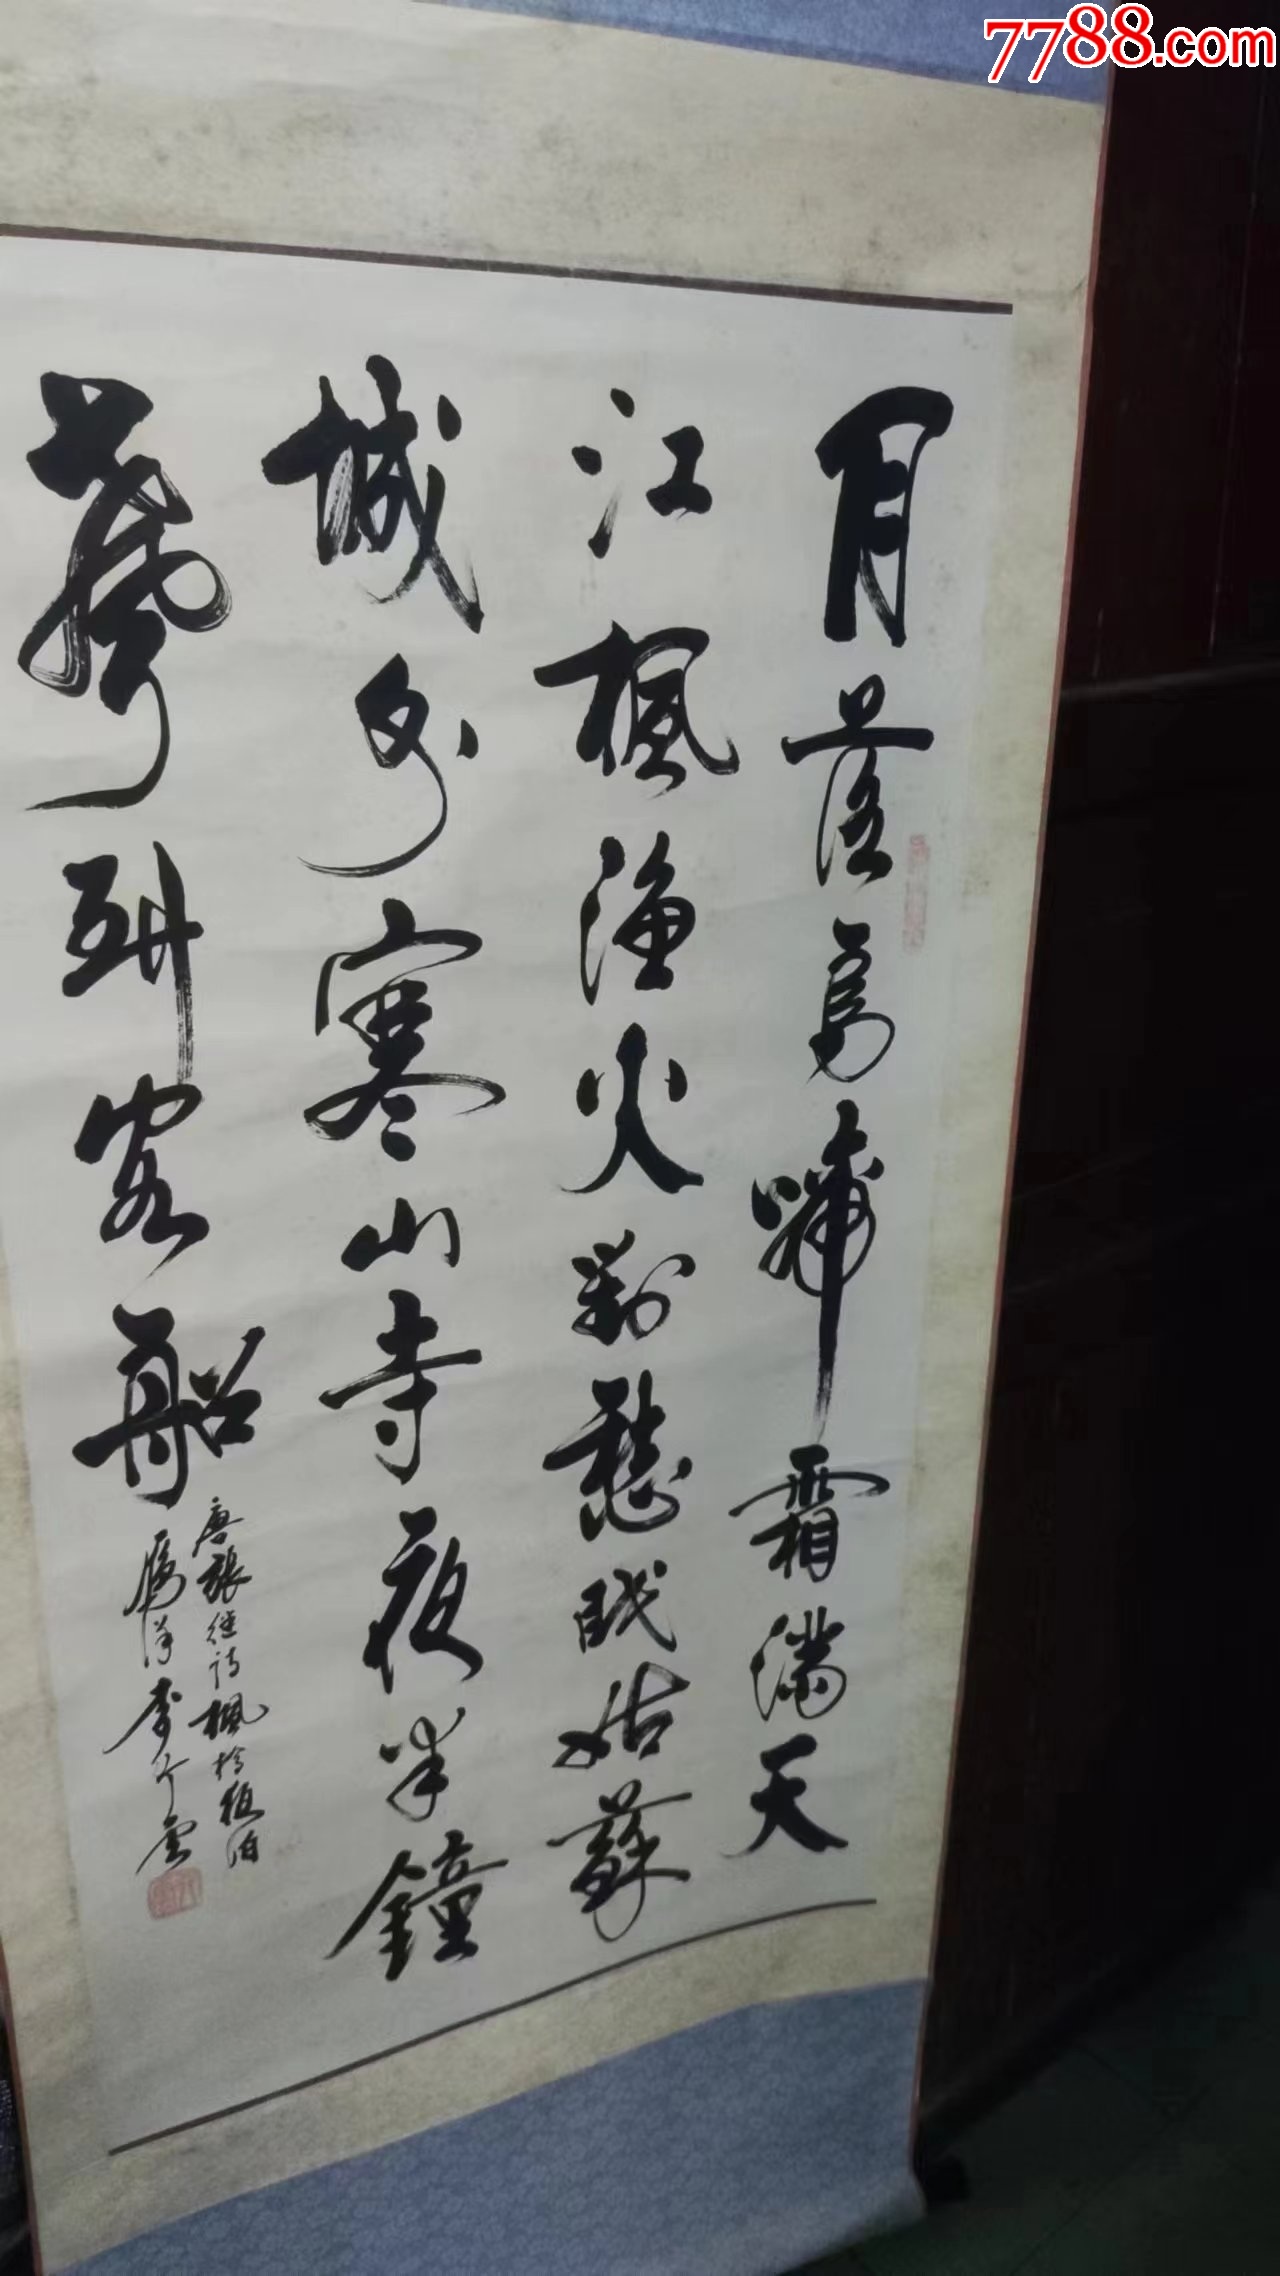 7788.com
月落烏啼霜滿天
江楓漁火對愁眠姑蘇
城外寒山寺夜半鐘
聲到客船
唐張继诗楓桥夜泊